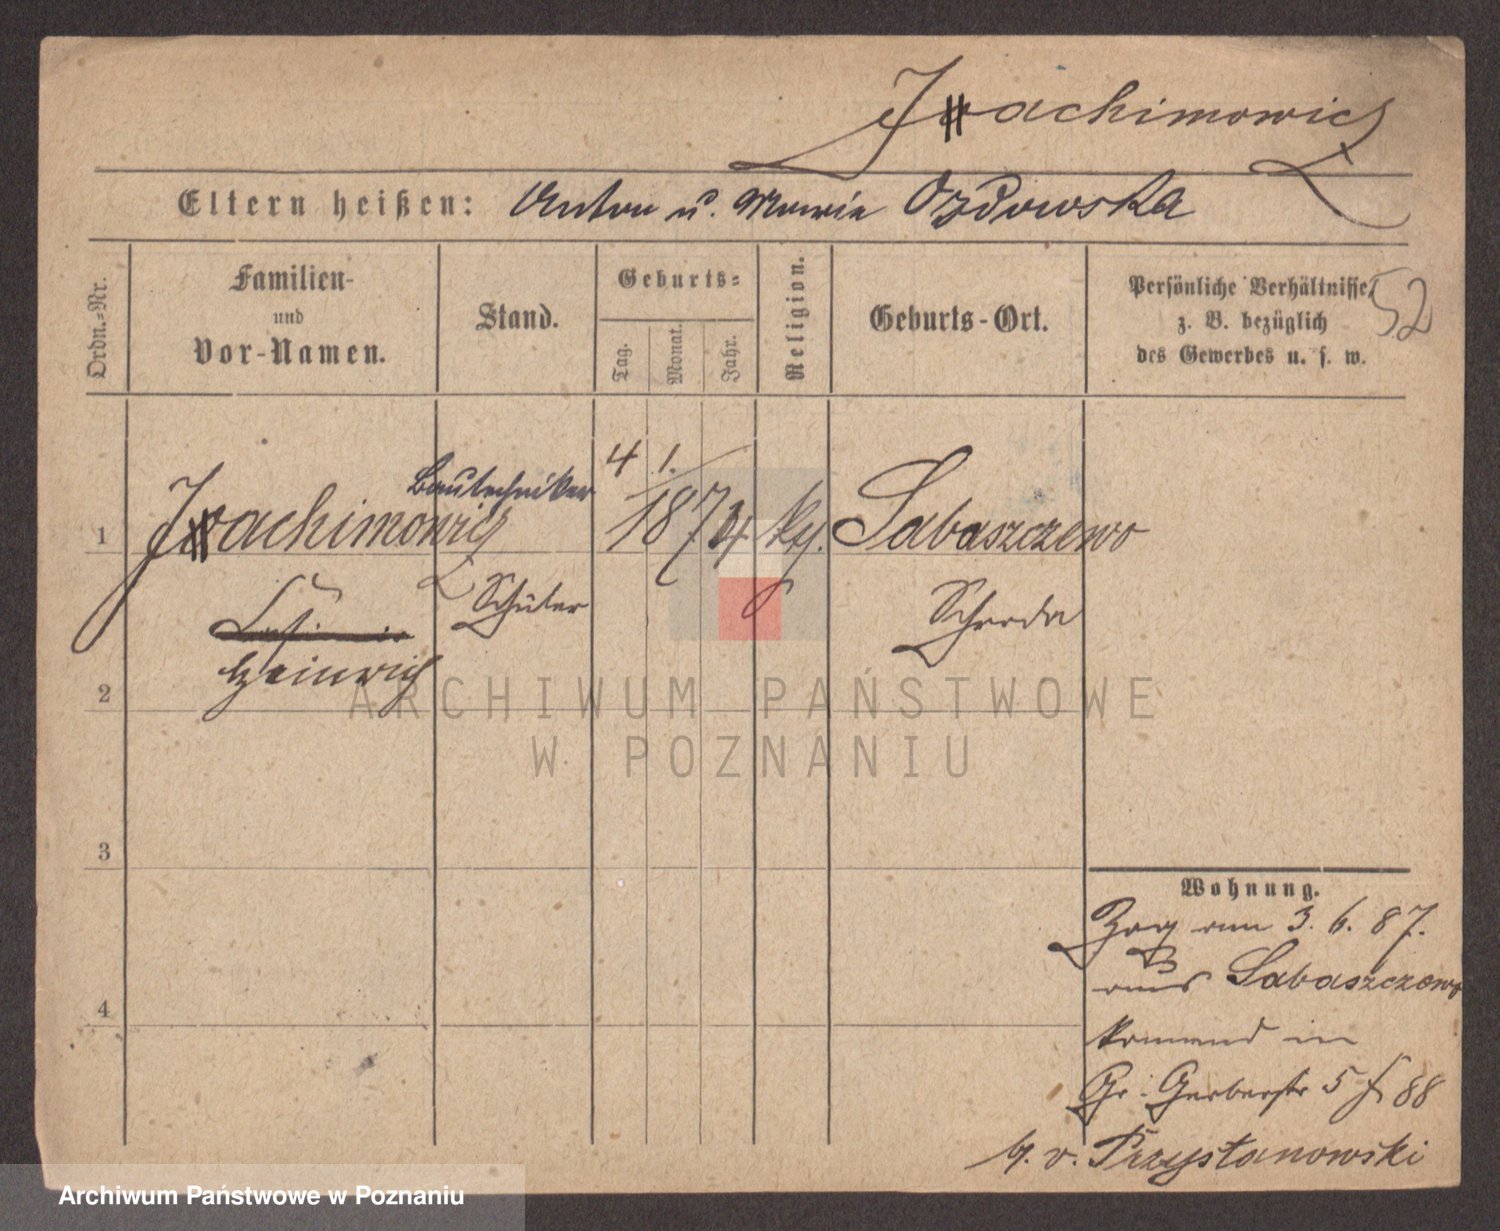 Joachimowicz
Eltern heißen: Anton u. Marie Ozdowska
Ordn.-Nr.
Familien-
und
Vor-Namen.
Stand.
Geburts-
Tag.
Monat.
Jahr.
Religion.
Geburts-Ort.
Persönliche Verhältnisse,
z. B. bezüglich
des Gewerbes u. s. w.
52
1
Joachimowicz
Bautechniker
4 1. 1874
kg.
Sabaszczewo
Schüler
Schroda
Heinrich
2
3
4
Wohnung.
Zog am 3. 6. 87.
aus Sabaszczewo
kommend in
Gr. Gerberstr 5 f 88
b. v. Przystanowski
ARCHIWUM PAŃSTWOWE
W POZNANIU
Archiwum Państwowe w Poznaniu